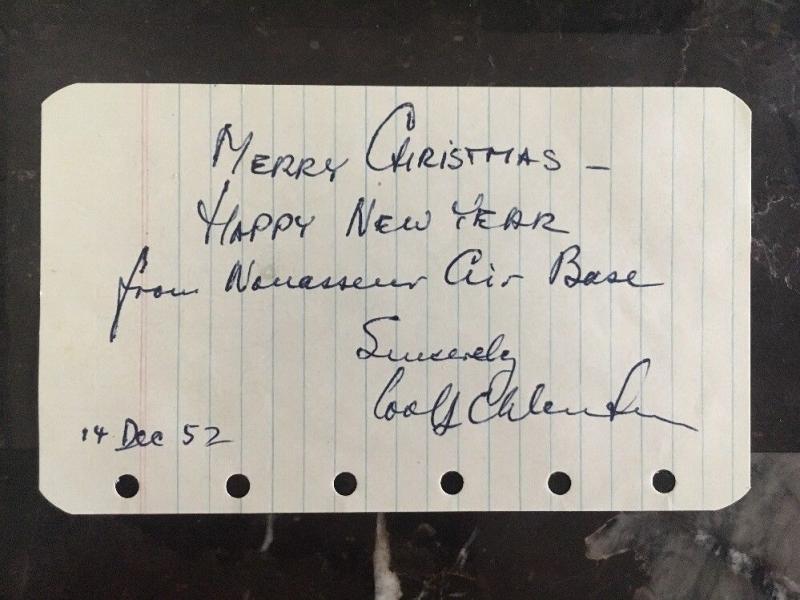 MERRY CHRISTMAS –
HAPPY NEW YEAR
from Nouasseur Air Base
Sincerely
14 Dec 52